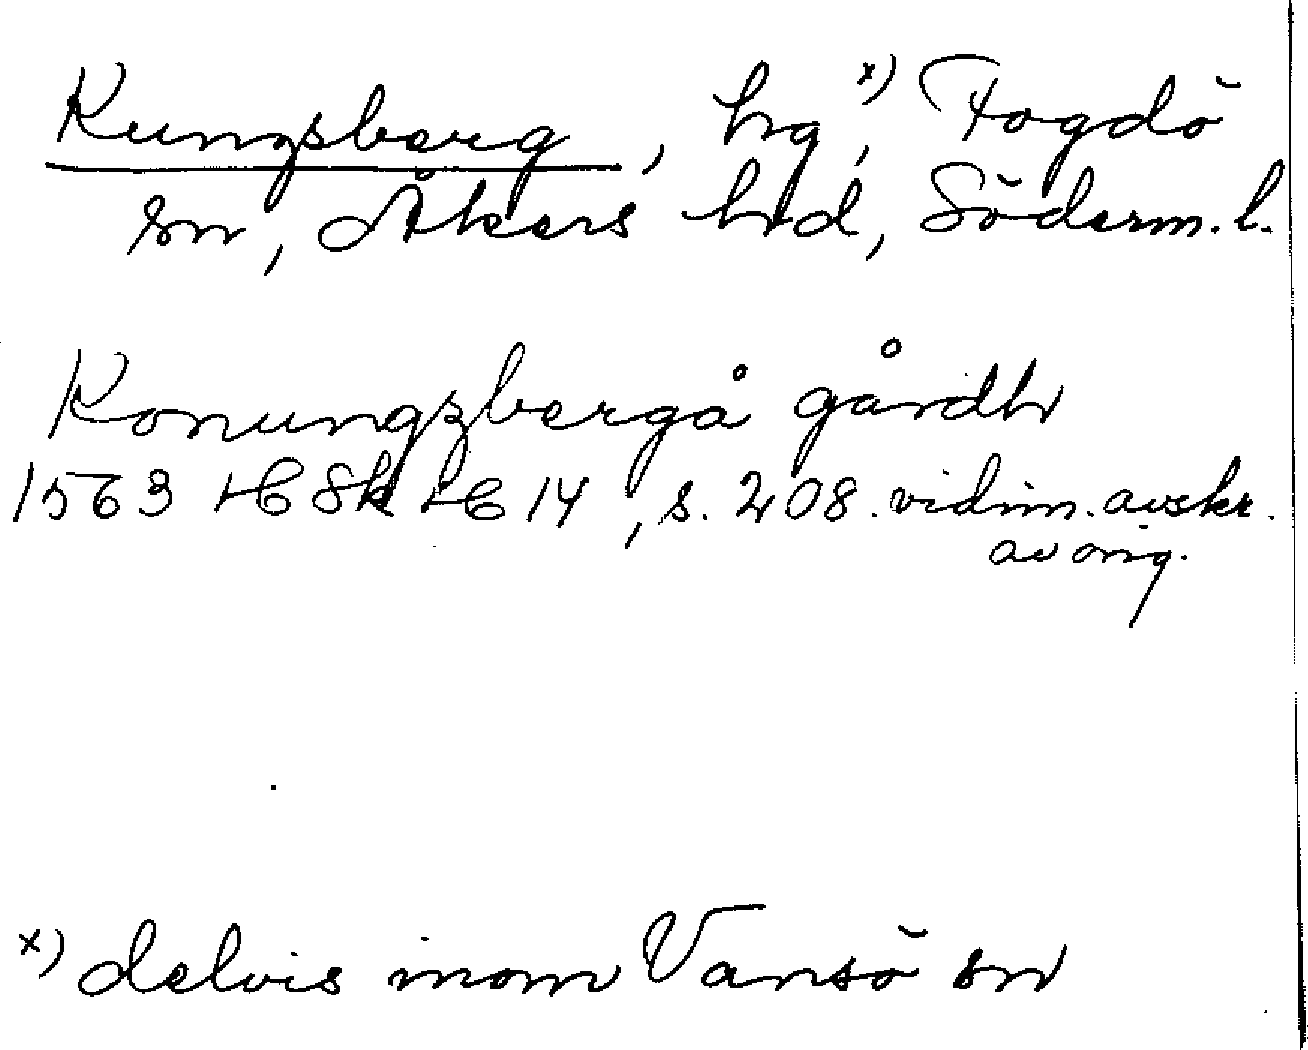 Kungsberg, hg, x) Fogdö
sn, Åkers hd, Söderm. l.
Konungzbergå gårdh
1563 HC Sk HC 14, s. 208. vidim. avskr.
av orig.
x) delvis inom Vansö sn